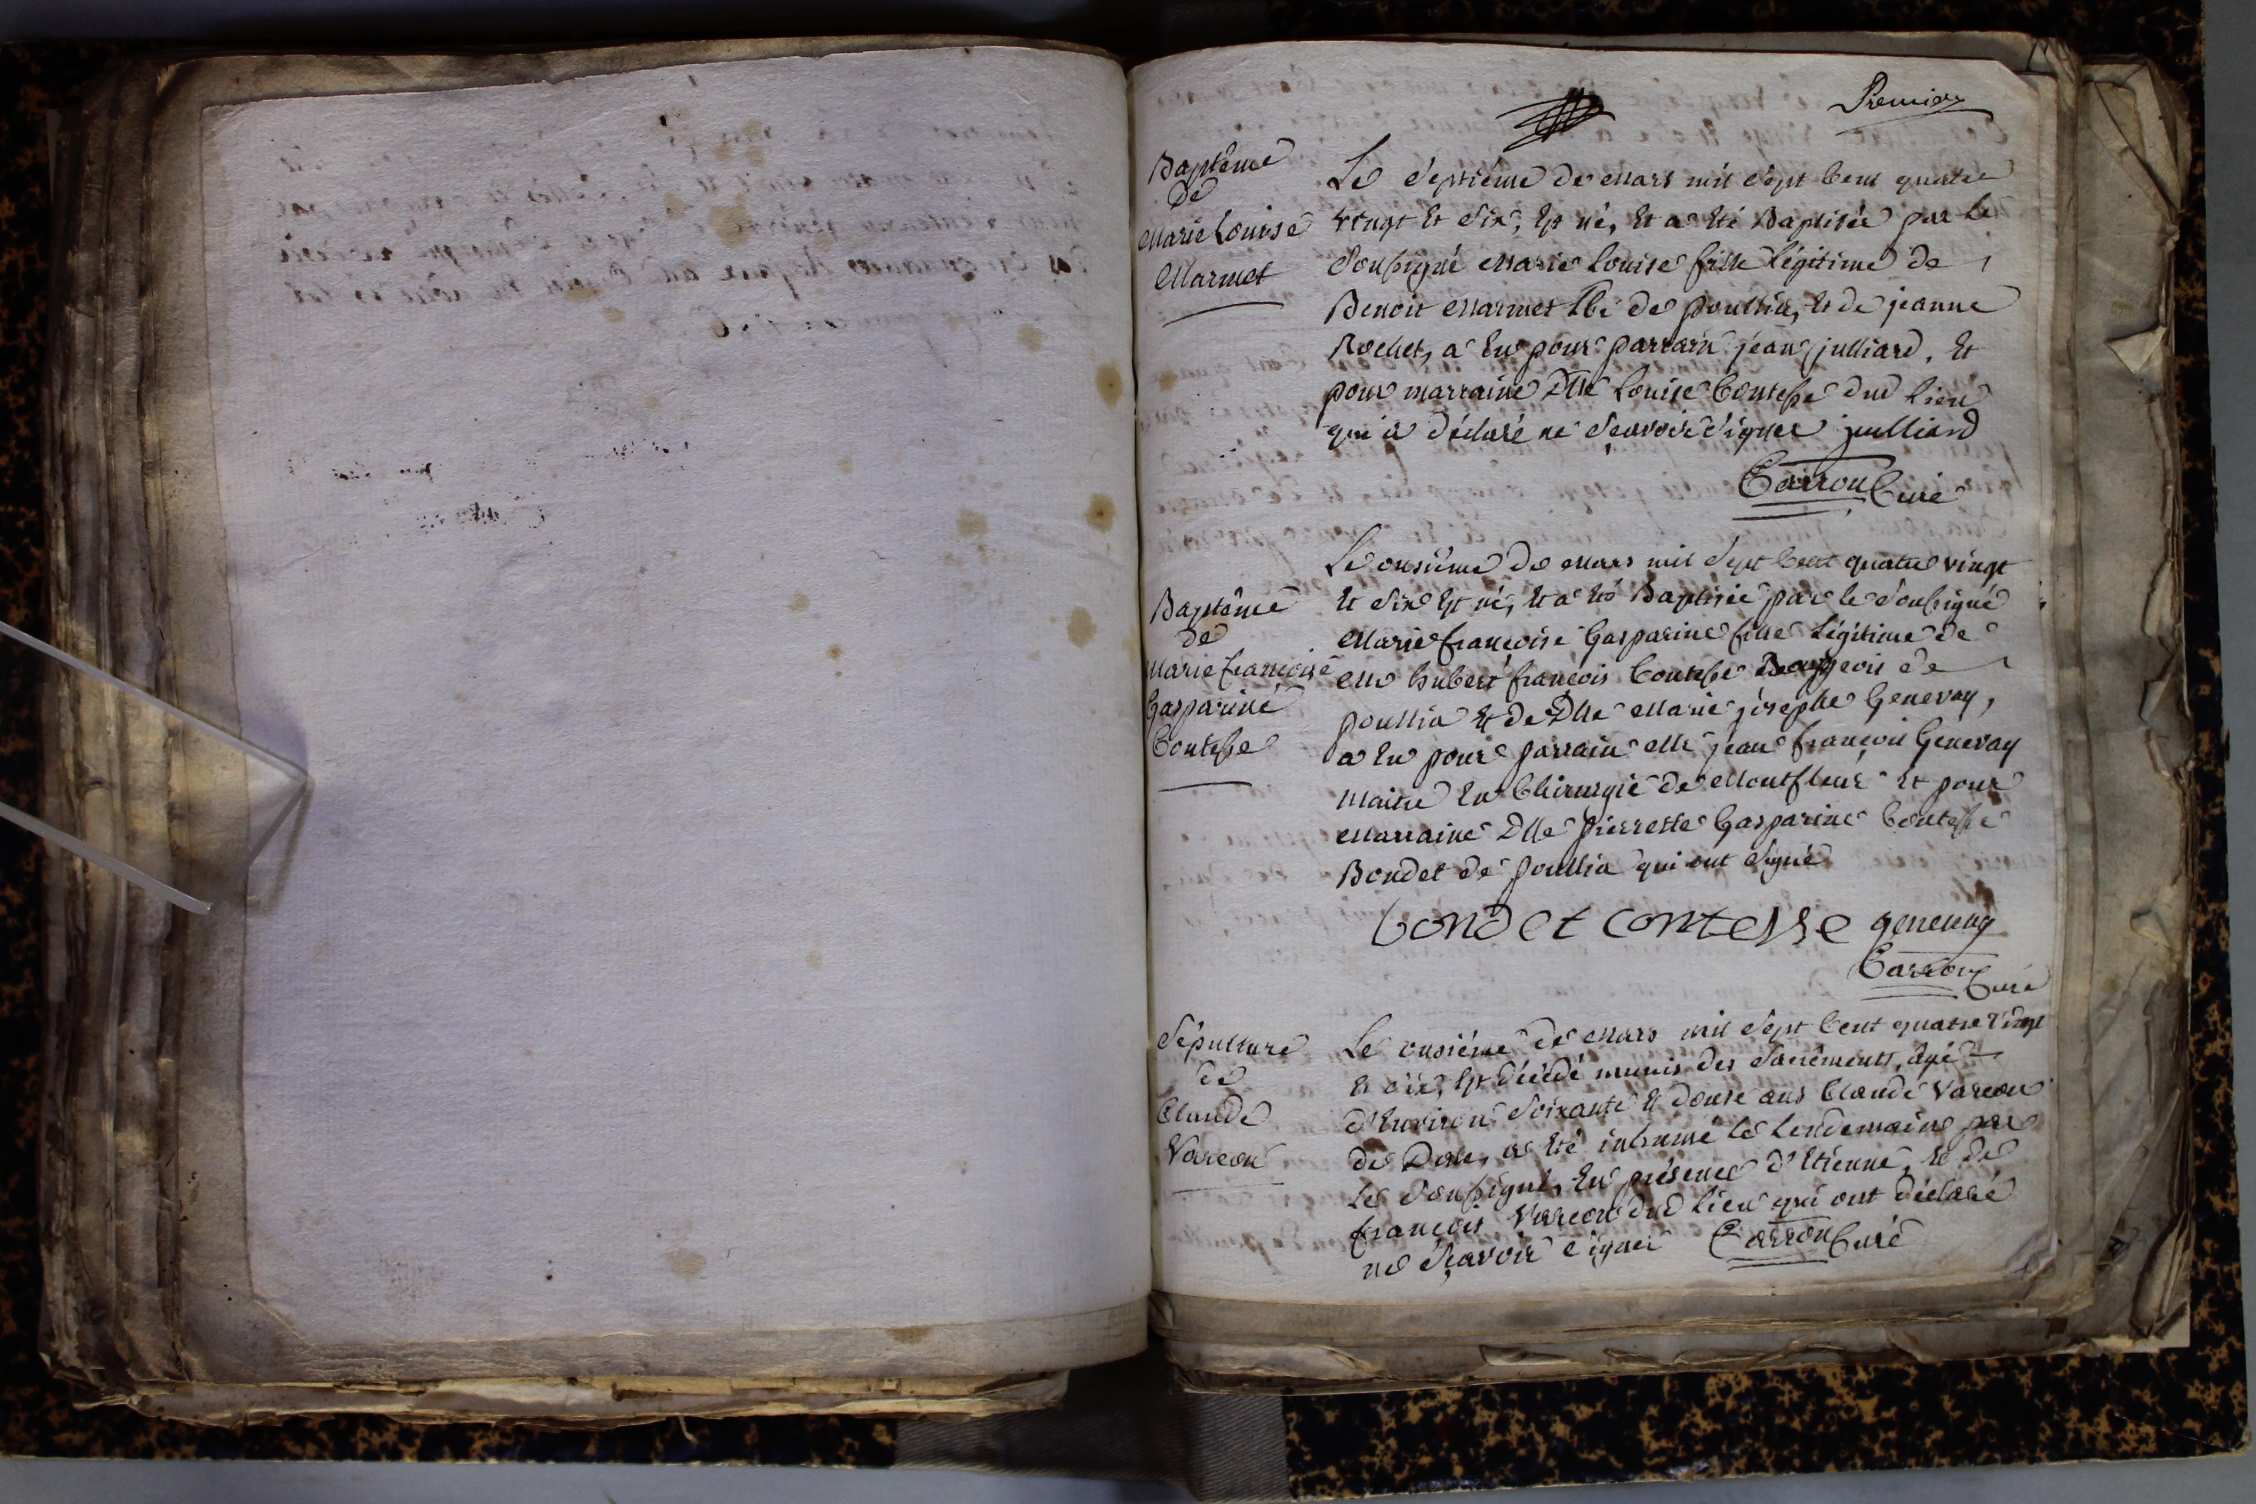 Premier
Baptême
de
Marie Louise
Marmet
Le séptiéme de Mars mil sépt Cent quatre
vingt Et six, Est né, Et a Eté Baptisée par le
soussigné Marie Louise fille Légitime de
Benoit Marmet de poullia, Et de jeanne
Rochet, a Eu pour parrain jean julliard, Et
pour marraine Dlle Louise Contesse dud Lieu
qui a déclaré ne sçavoir signer julliard
Carron Curé
Baptême
de
Marie françoise
Gasparine
Contesse
Le onsiéme de Mars mil sépt Cent quatre vingt
Et six Est né, Et a Eté Baptisée par le soussigné
Marie françoise Gasparine fille Légitime de
Mr hubert françois Contesse Bourgeois de
poullia Et de Dlle Marie josephe Genevay,
a Eu pour parrain Mr jean françois Genevay
Maitre En Chirurgie de Montfleur Et pour
Marraine Dlle pierrette Gasparine Contesse
Bondet de poullia qui ont signé
bondet contesse genevay
Carron Curé
Sépulture
de
Claude
Vareon
Le onsiéme de Mars mil sépt Cent quatre vingt
Et six, Est décédé munis des sacréments, agé
d'Environ soixante Et douse ans Claude Vareon
de Dole, a Eté inhumé le Lendemain par
Le soussigné, En présence d'Etienne, Et de
françois Vareon dud Lieu qui ont déclaré
ne sçavoir signer Carron Curé